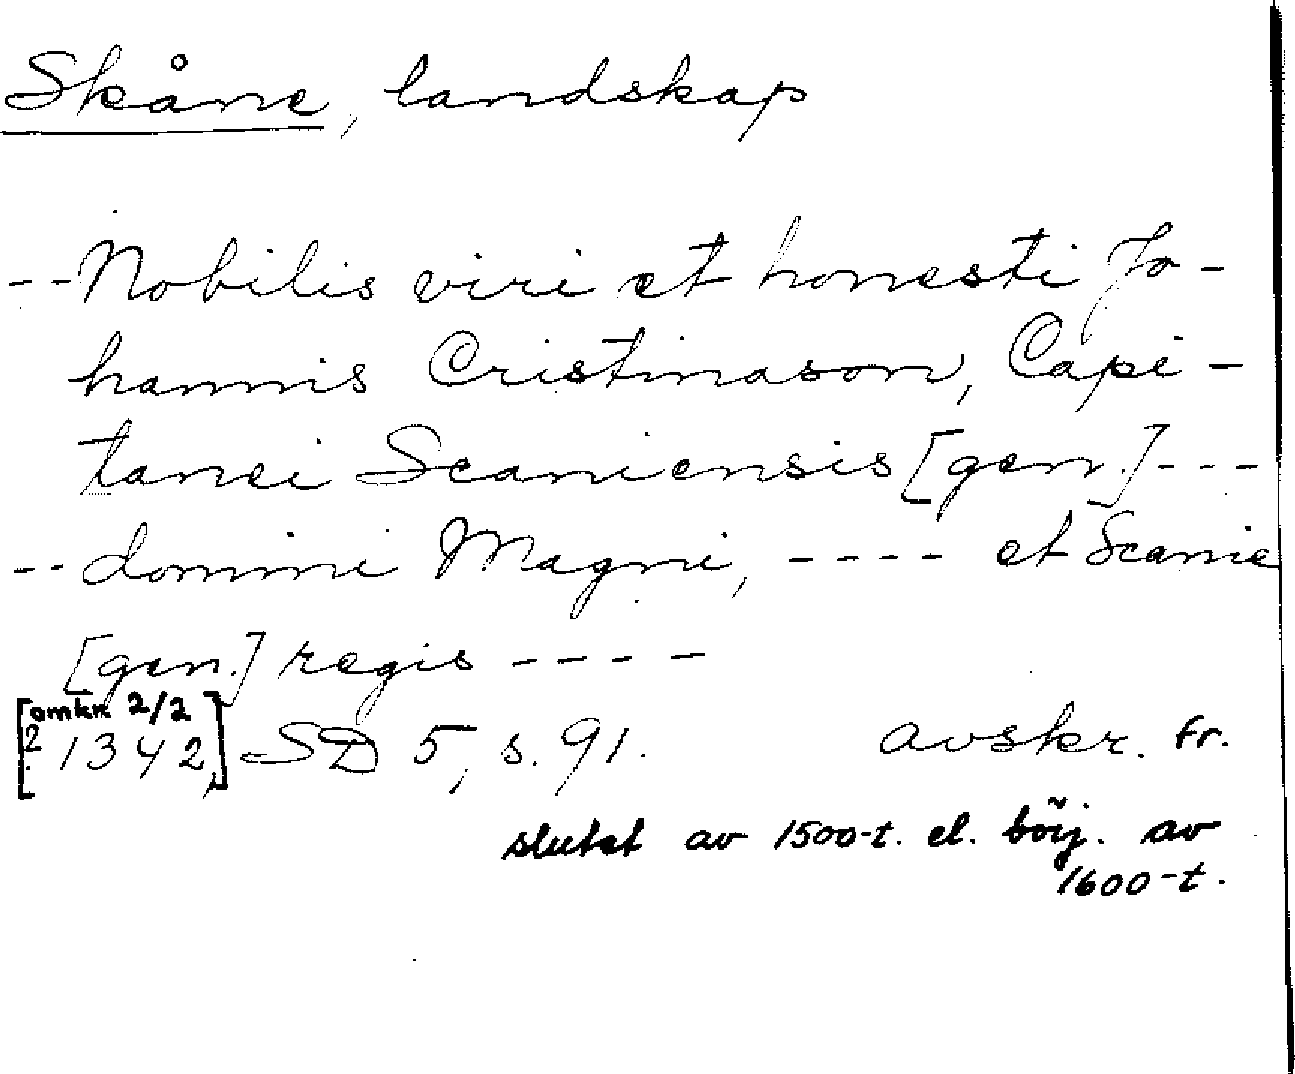 Skåne, landskap
-- Nobilis viri et honesti Jo-
hannis Cristinason, Capi-
tanei Scaniensis [gen.] ---
-- domini Magni, ---- et Scanie
[gen.] regis ----
[omkr 2/2
? 1342] SD 5, s. 91. avskr. fr.
slutet av 1500-t. el. börj. av
1600-t.